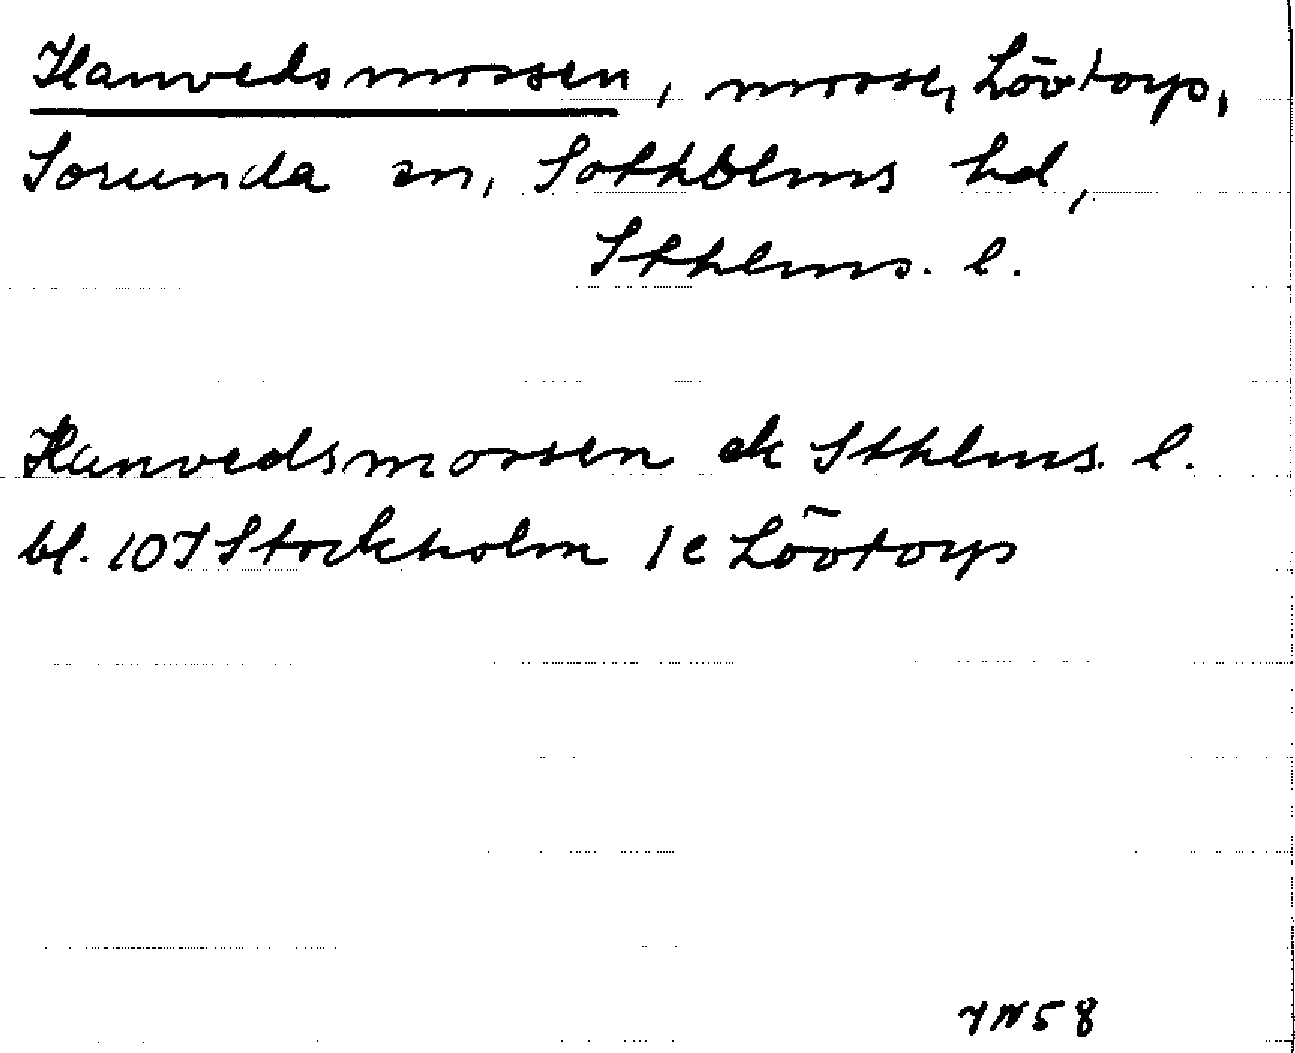 Hanvedsmossen, mosse, Lövtorp,
Sorunda sn, Sotholms hd,
Sthlms. l.
Hanvedsmossen ek Sthlms. l.
bl. 10I Stockholm 1e Lövtorp